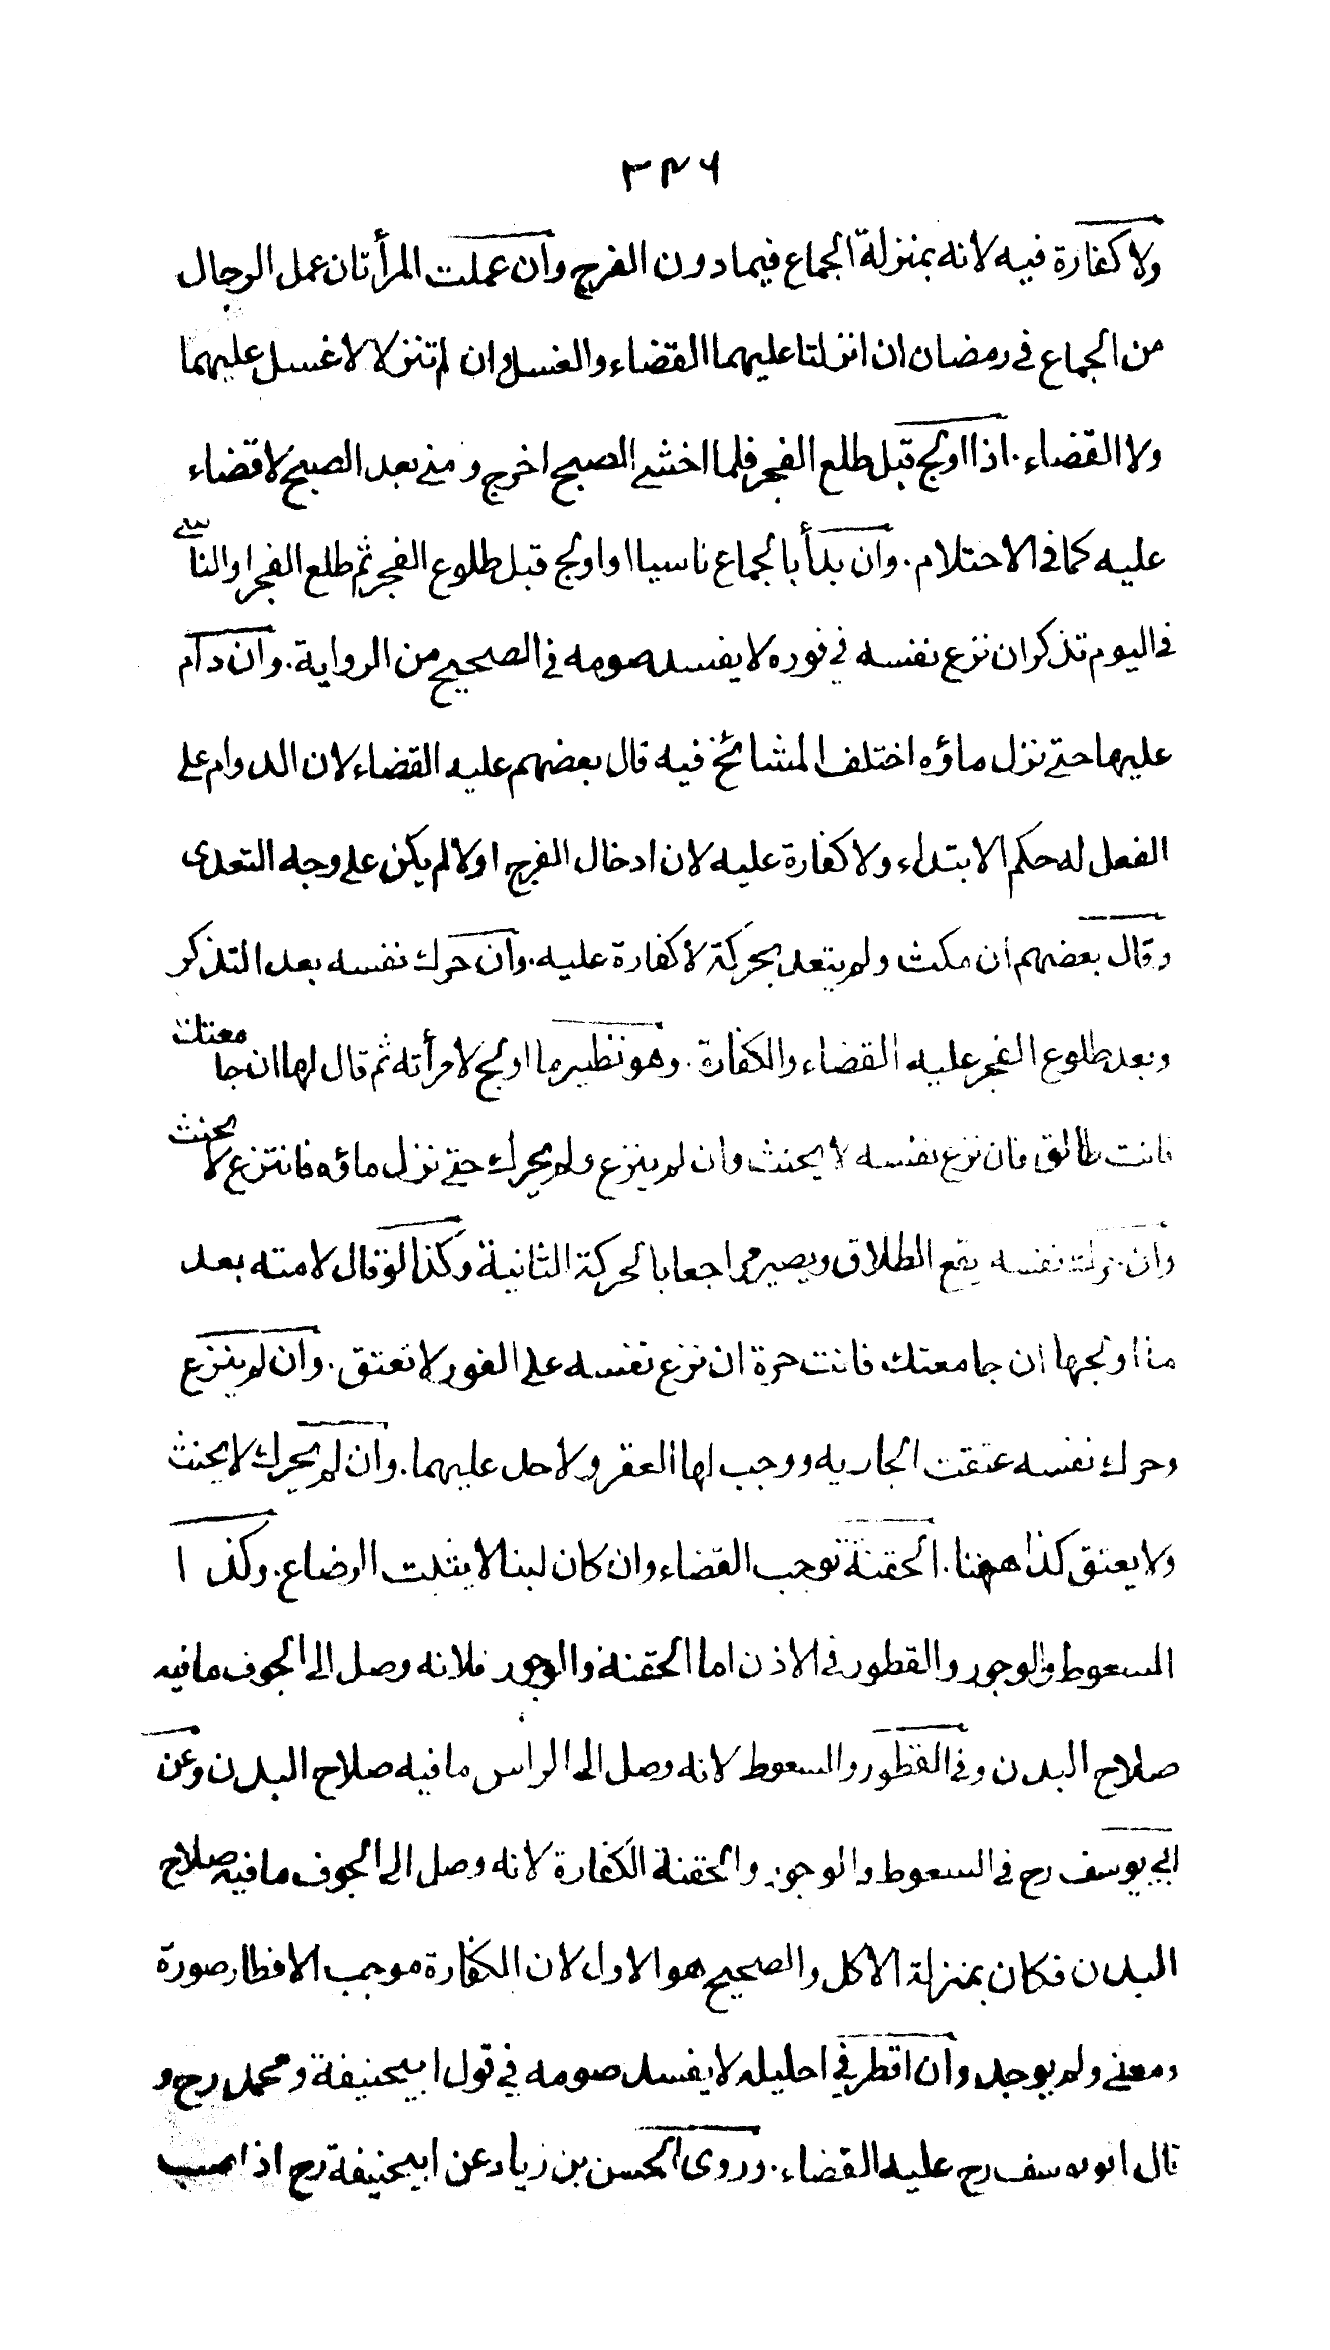 ٣٤٦
ولا كفارة فيه لانه بمنزلة الجماع فيما دون الفرج وان عملت المرأتان عمل الرجال
من الجماع فى رمضان ان انزلتا عليهما القضاء والغسل وان لم تنزلا لا غسل عليهما
ولا القضاء . اذا اولج قبل طلع الفجر فلما اخشے الصبح اخرج ومنے بعد الصبح لا قضاء
عليه كما فى الاحتلام . وان بدأ بالجماع ناسيا او اولج قبل طلوع الفجر ثم طلع الفجر او الناسے
فى اليوم تذكر ان نزع نفسه في فوره لا يفسد صومه فى الصحيح من الرواية . وان دام
عليها حتے نزل ماؤه اختلف المشائخ فيه قال بعضهم عليه القضاء لان الدوام على
الفعل له حكم الابتداء ولا كفارة عليه لان ادخال الفرج اولا لم يكن على وجه التعدى
وقال بعضهم ان مكث ولم يتعد بحركة لا كفارة عليه . وان حرك نفسه بعد التذكر
وبعد طلوع الفجر عليه القضاء والكفارة . وهو نظير ما اولج لامرأته ثم قال لها ان جامعتك
فانت طالق فان نزع نفسه لا يحنث وان لم ينزع ولم يحرك حتے نزل ماؤه فانتزع لا يحنث
وان حرك نفسه يقع الطلاق ويصير مراجعا بالحركة الثانية وكذا لو قال لامته بعد
ما اولجها ان جامعتك فانت حرة ان نزع نفسه على الفور لا تعتق . وان لم ينزع
وحرك نفسه عتقت الجاريه ووجب لها العقر ولا حد عليهما . وان لم يحرك لا يحنث
ولا يعتق كذا ههنا . الحقنة توجب القضاء وان كان لبنا لا يثبت الرضاع . وكذا
السعوط والوجور والقطور فى الاذن اما الحقنة والوجور فلانه وصل الى الجوف ما فيه
صلاح البدن وفى القطور والسعوط لانه وصل الى الراس ما فيه صلاح البدن وعن
ابي يوسف رح فى السعوط والوجور والحقنة الكفارة لانه وصل الى الجوف ما فيه صلاح
البدن فكان بمنزلة الاكل والصحيح هو الاول لان الكفارة موجب الافطار صورة
ومعنے ولم يوجد وان اقطر في احليله لا يفسد صومه في قول ابيحنيفة ومحمد رح و
قال ابو يوسف رح عليه القضاء . وروى الحسن بن زياد عن ابيحنيفة رح اذا صب